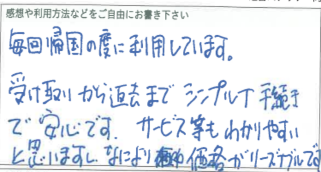 感想や利用方法などをご自由にお書き下さい
毎回帰国の度に利用しています。
受け取りから返去まで シンプルナ手続き
で安心です。サービス等もわかりやすい
と思いますし、なにより 価格がリーズナブルです